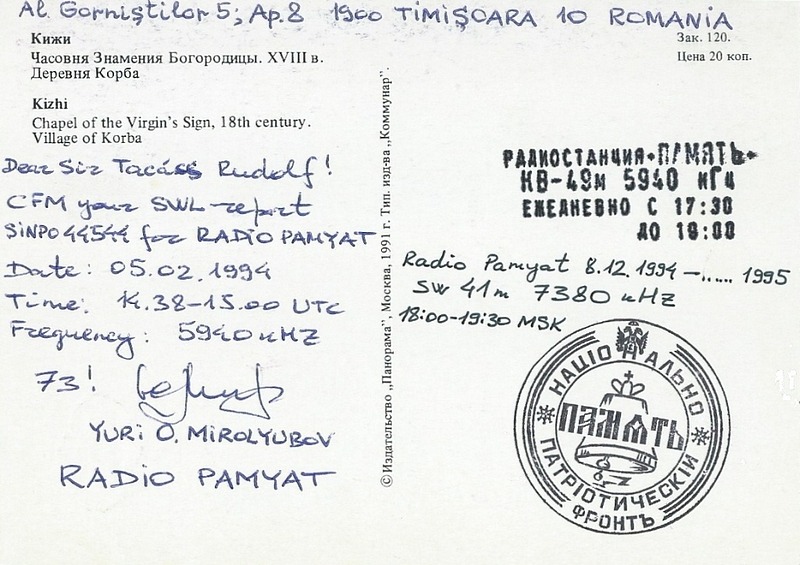 Al. Gorniștilor 5; Ap. 8 1900 TIMIȘOARA 10 ROMANIA
Кижи
Часовня Знамения Богородицы. XVIII в.
Деревня Корба
Kizhi
Chapel of the Virgin's Sign, 18th century.
Village of Korba
Зак. 120.
Цена 20 коп.
Dear Sir Tacáss Rudolf!
CFM your SWL-report
SINPO 44544 for RADIO PAMYAT
Date: 05.02.1994
Time: 14.38-15.00 UTC
Frequency: 5940 kHz
73!
YURI O. MIROLYUBOV
RADIO PAMYAT
© Издательство „Панорама", Москва, 1991 г. Тип. изд-ва „Коммунар".
РАДИОСТАНЦИЯ•ПАМЯТЬ•
КВ-49м 5940 кГц
ЕЖЕДНЕВНО С 17:30
ДО 18:00
Radio Pamyat 8.12.1994 –...... 1995
SW 41m 7380 kHz
18:00-19:30 MSK
НАЦІОНАЛЬНО
ПАМЯТЬ
ПАТРІОТИЧЕСКІЙ
ФРОНТЪ